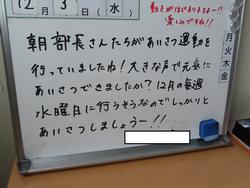 12月3日(水)
動きがはじまりますねー!!
楽しみですね!!
月
火
木
金
朝部長さんたちがあいさつ運動を
行っていましたね!大きな声で元気に
あいさつできましたか?12月の毎週
水曜日に行うそうなのでしっかりと
あいさつしましょうー!!